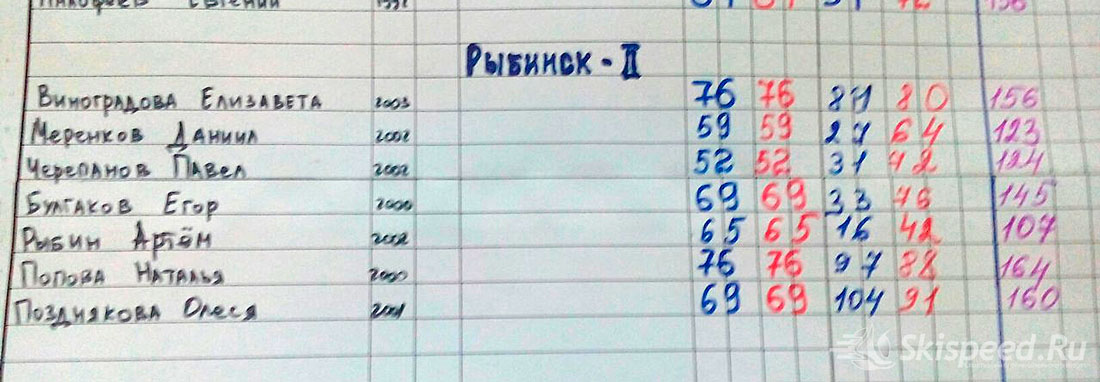 Евгений 1992 156
Рыбинск - II
Виноградова Елизавета 2003 76 76 81 80 156
Меренков Даниил 2002 59 59 27 64 123
Черепанов Павел 2002 52 52 31 72 124
Булгаков Егор 2000 69 69 33 76 145
Рыбин Артём 2002 65 65 16 42 107
Попова Наталья 2000 76 76 97 88 164
Позднякова Олеся 2001 69 69 104 91 160
Skispeed.Ru